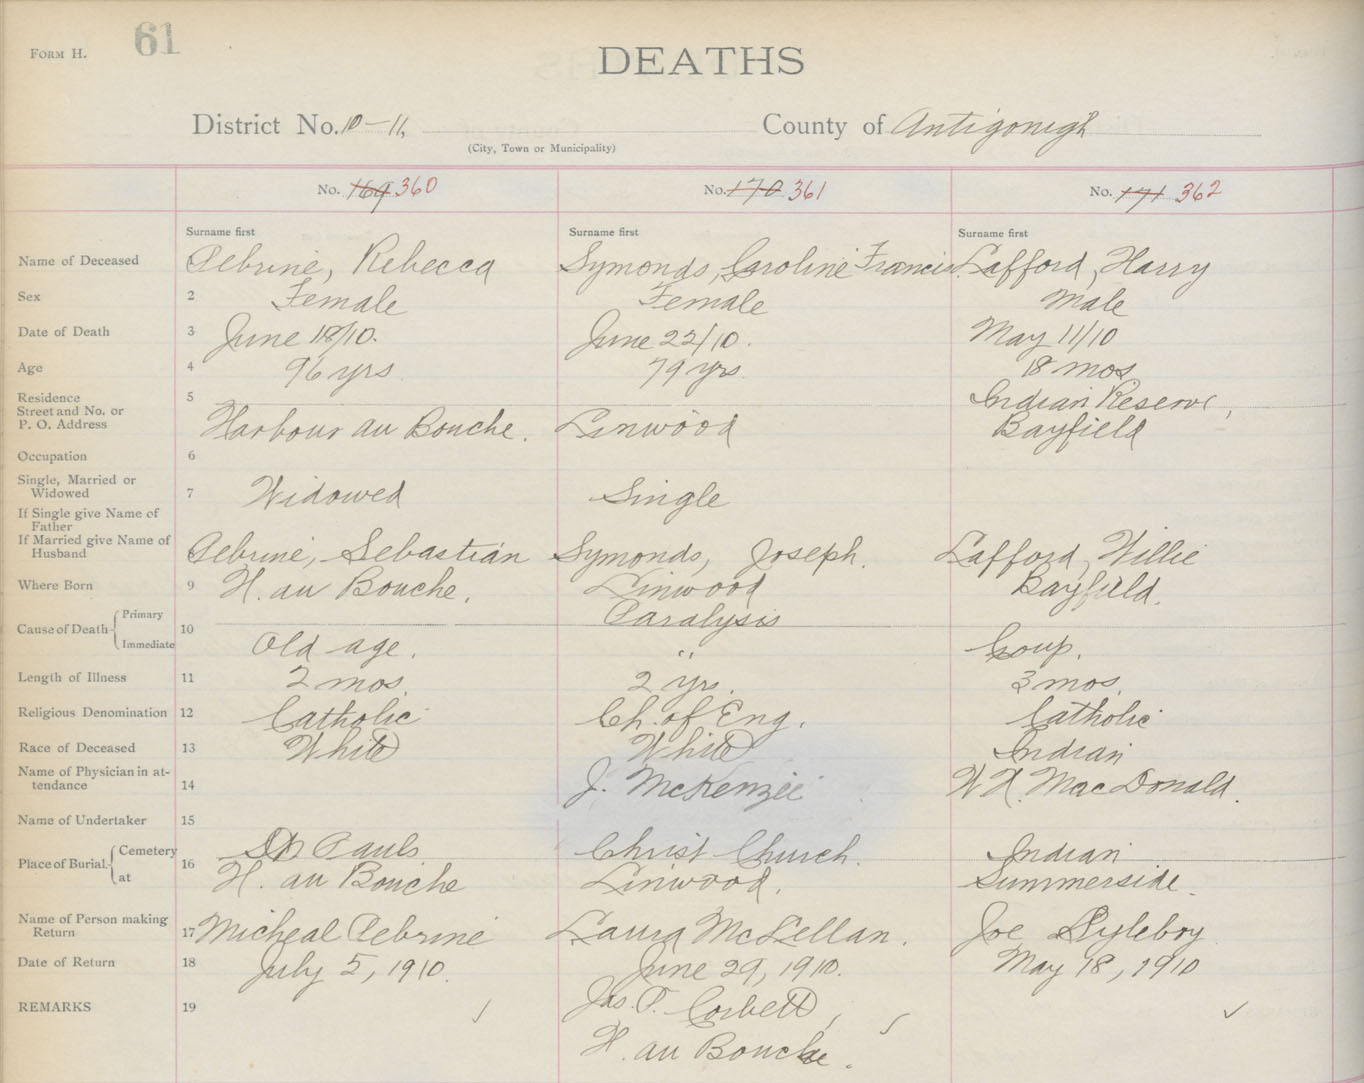 FORM H. 61
DEATHS
District No. 10-11, County of Antigonish
(City, Town or Municipality)
No. 169 360 No. 170 361 No. 171 362
Surname first Surname first Surname first
Name of Deceased Pebrine, Rebecca Symonds, Caroline Francis Lafford, Harry
Sex 2 Female Female Male
Date of Death 3 June 18/10. June 22/10. May 11/10
Age 4 96 yrs. 79 yrs. 18 mos
Residence 5 Indian Reserve,
Street and No. or
P. O. Address Harbour au Bouche. Linwood Bayfield
Occupation 6
Single, Married or
Widowed 7 Widowed Single
If Single give Name of
Father
If Married give Name of
Husband Pebrine, Sebastian Symonds, Joseph. Lafford, Willie
Where Born 9 H. au Bouche. Linwood Bayfield.
Cause of Death Primary 10 Paralysis
Immediate Old age. " Coup.
Length of Illness 11 2 mos. 2 yrs. 3 mos.
Religious Denomination 12 Catholic Ch. of Eng. Catholic
Race of Deceased 13 White White Indian
Name of Physician in at-
tendance 14 J. McKenzie W. H. MacDonald.
Name of Undertaker 15
Place of Burial Cemetery 16 St. Pauls Christ Church. Indian
at H. au Bouche Linwood. Summerside.
Name of Person making
Return 17 Micheal Pebrine Laura McLellan. Joe
Date of Return 18 July 5, 1910. June 29, 1910. May 18, 1910
REMARKS 19 Jas. P. Corbett,
H. au Bouche.